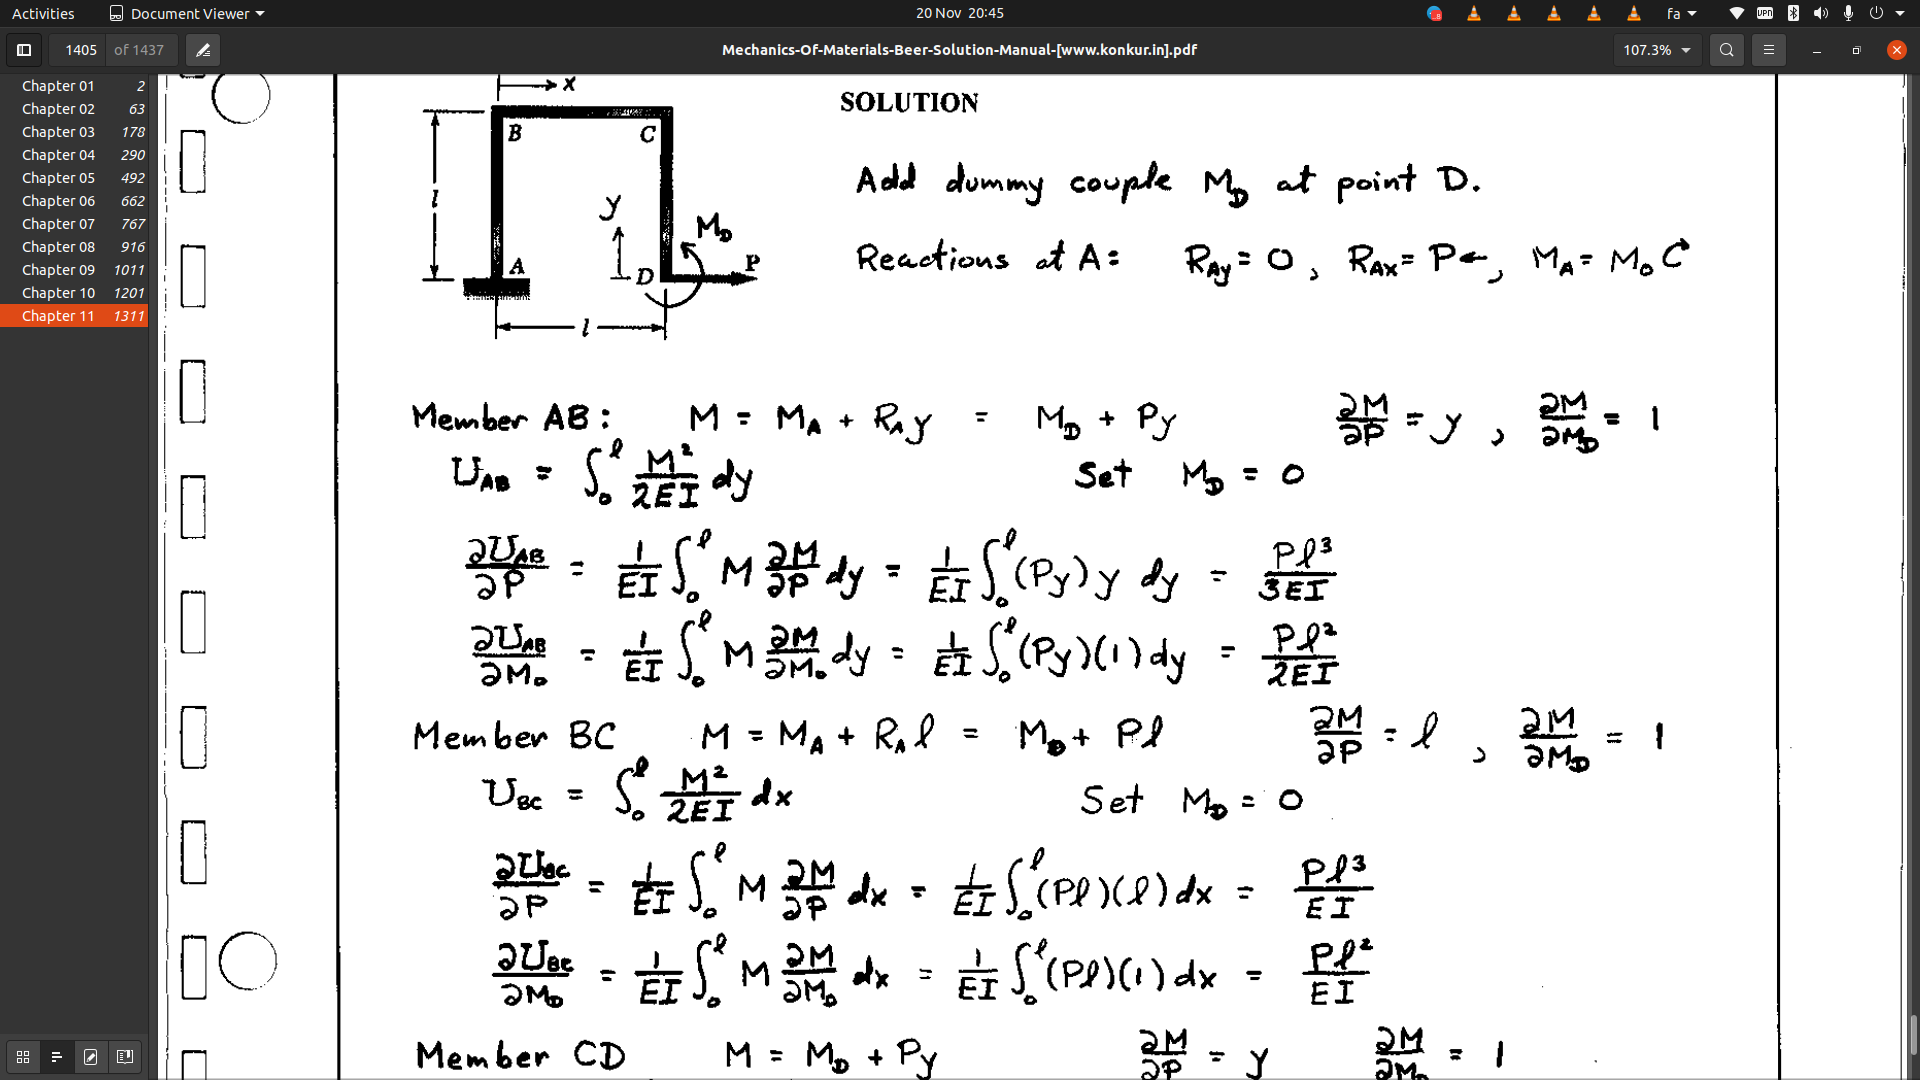 Activities Document Viewer 20 Nov 20:45 fa VPN
1405 of 1437 Mechanics-Of-Materials-Beer-Solution-Manual-[www.konkur.in].pdf 107.3%
Chapter 01 2
Chapter 02 63
Chapter 03 178
Chapter 04 290
Chapter 05 492
Chapter 06 662
Chapter 07 767
Chapter 08 916
Chapter 09 1011
Chapter 10 1201
Chapter 11 1311
x
B C
l
y
M_D
A
D
P
l
SOLUTION
Add dummy couple M_D at point D.
Reactions at A: R_Ay = 0, R_Ax = P ←, M_A = M_0 ↻
Member AB: M = M_A + R_A y = M_D + Py ∂M/∂P = y, ∂M/∂M_D = 1
U_AB = ∫₀^l M²/2EI dy Set M_D = 0
∂U_AB/∂P = 1/EI ∫₀^l M ∂M/∂P dy = 1/EI ∫₀^l (Py) y dy = Pl³/3EI
∂U_AB/∂M_0 = 1/EI ∫₀^l M ∂M/∂M_0 dy = 1/EI ∫₀^l (Py)(1) dy = Pl²/2EI
Member BC M = M_A + R_A l = M_D + Pl ∂M/∂P = l, ∂M/∂M_D = 1
U_BC = ∫₀^l M²/2EI dx Set M_D = 0
∂U_BC/∂P = 1/EI ∫₀^l M ∂M/∂P dx = 1/EI ∫₀^l (Pl)(l) dx = Pl³/EI
∂U_BC/∂M_D = 1/EI ∫₀^l M ∂M/∂M_0 dx = 1/EI ∫₀^l (Pl)(1) dx = Pl²/EI
Member CD M = M_D + Py ∂M/∂P = y ∂M/∂M_D = 1